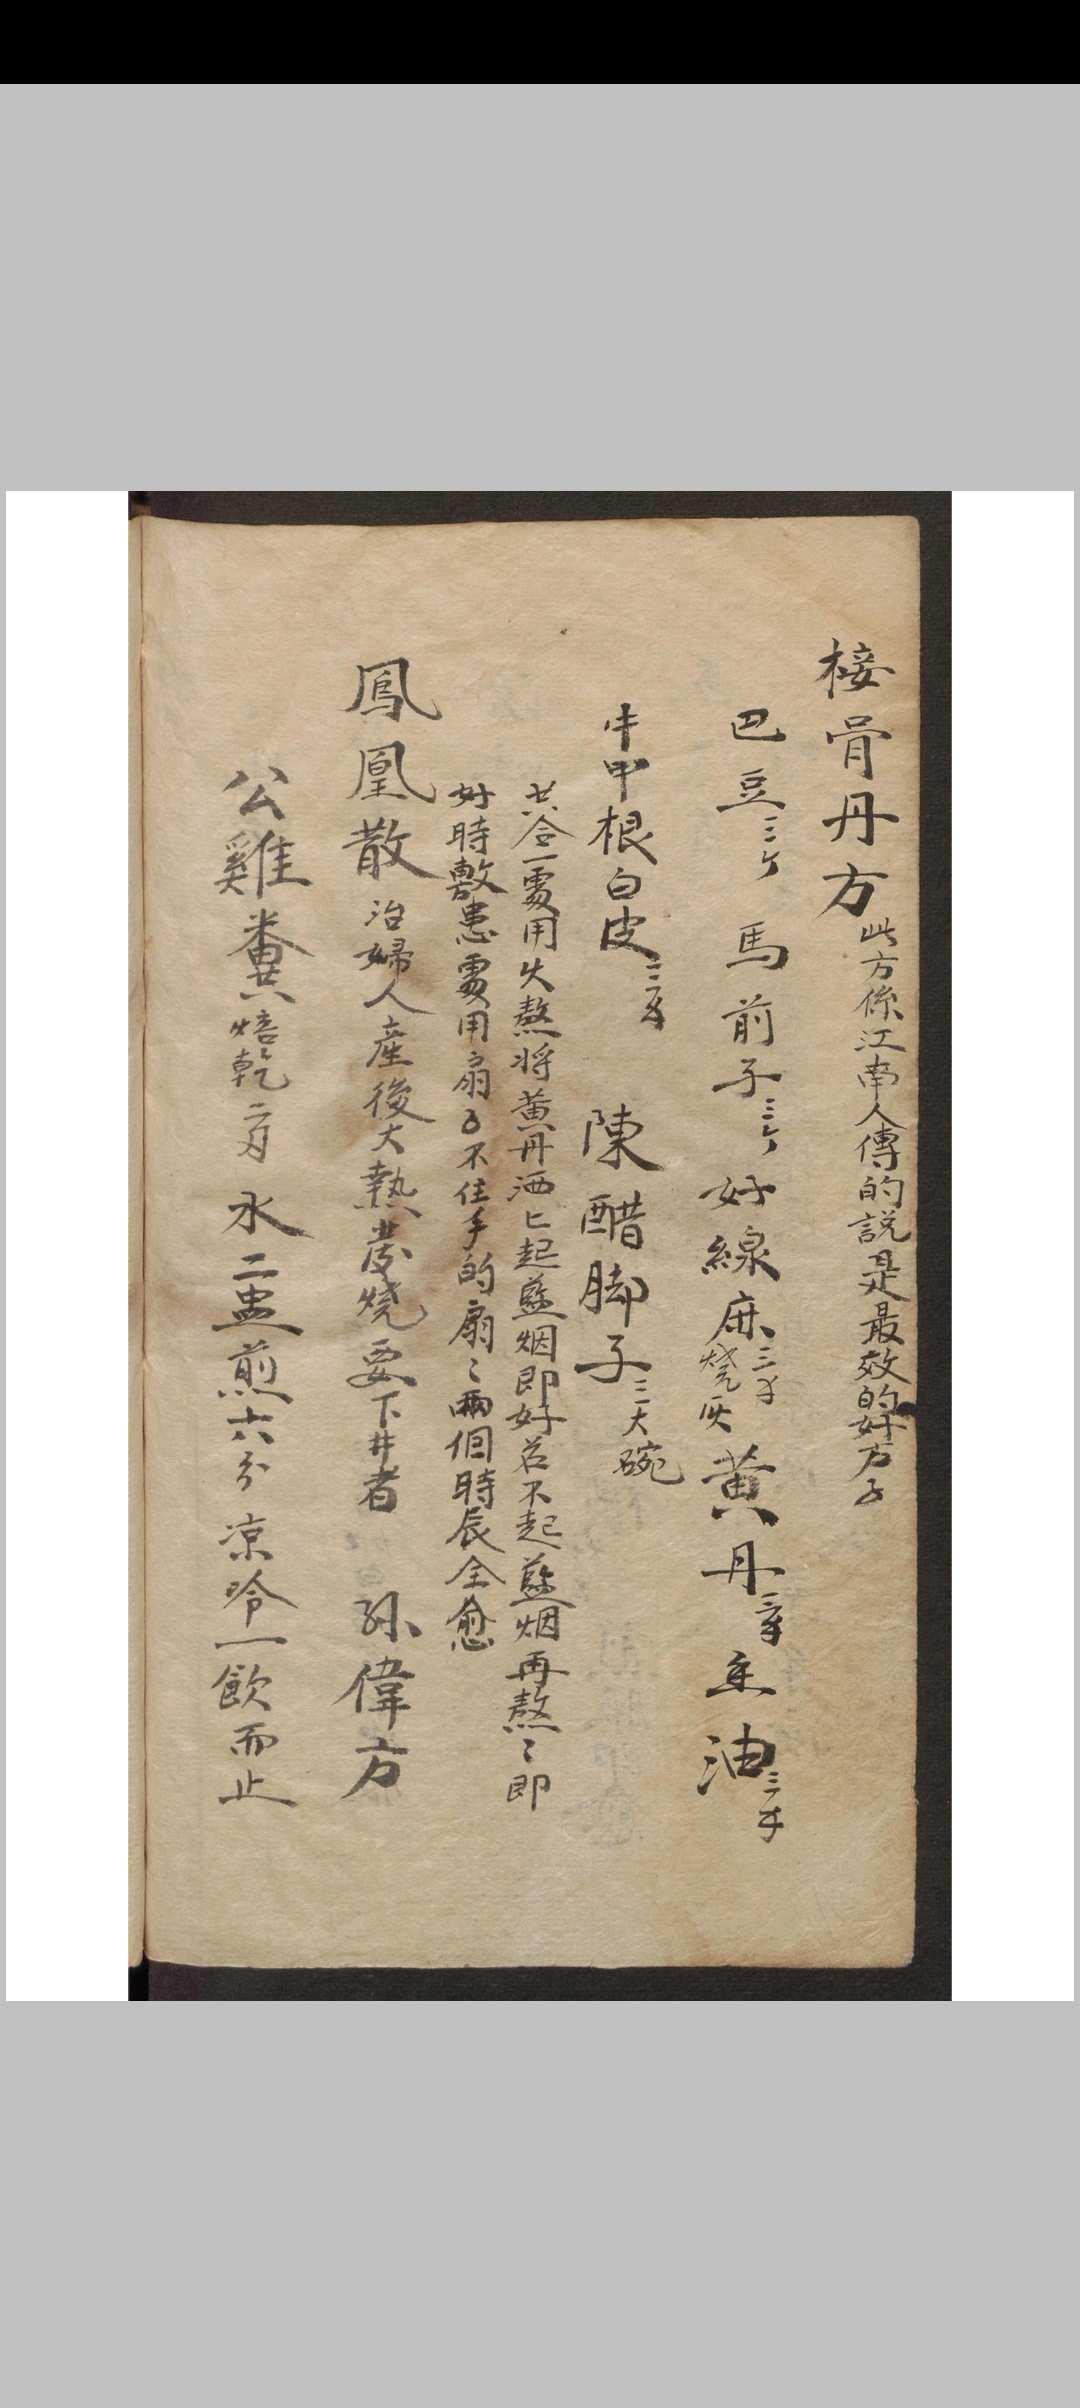 接骨丹方 此方係江南人傳的說是最效的好方子
巴豆三个 馬前子三个 好線麻三才 燒灰 黃丹 香油三才
牛甲根白皮三 陳醋脚子三大碗
共合一處用火熬將黃丹洒上起藍烟即好若不起藍烟再熬〻即
好時敷患處用扇子不住手的扇〻兩個時辰全愈
鳳凰散 治婦人産後大熱發燒要下井者 孫偉方
公雞糞焙乾 水二盅煎六分凉冷一飲而止